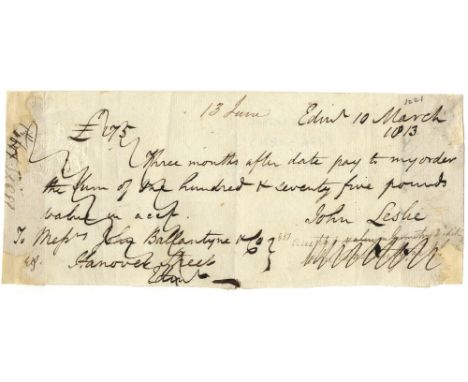 1221
13 June Edinr 10 March
1813
£175
Three months after date pay to my order
the sum of One hundred & seventy five pounds
value in acct.
John Leslie
To Messrs Jno Ballantyne & Co
Hanover Street
Edinr